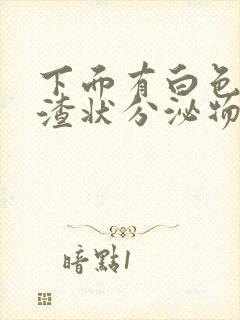 下面有白色
渣状分泌物
暗點1